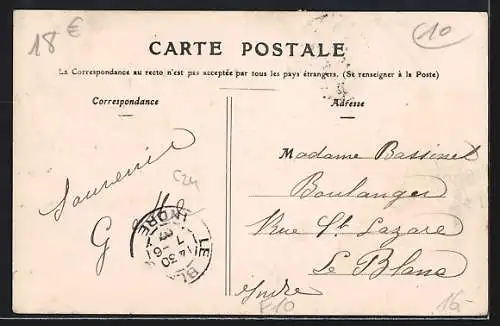 18 €
10
CARTE POSTALE
La Correspondance au recto n'est pas acceptée par tous les pays étrangers. (Se renseigner à la Poste)
Correspondance
Adresse
Souvenir
C24
G
LE BL
INDRE
14 30
Madame Bassinet
Boulanger
Rue St Lazare
Le Blanc
Indre
E10
16-